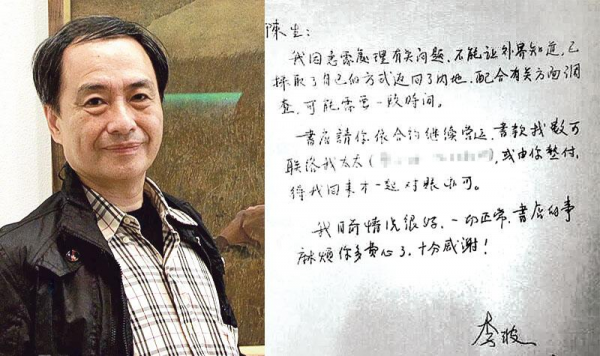 陳生：
我因急需處理有关问题，不能让外界知道，已
採取了自己的方式返回了內地，配合有关方面调
查，可能需要一段時间。
書店請你依合約继续营运，書款找數可
联络我太太（），或由你墊付，
待我回来才一起对账亦可。
我目前情况很好，一切正常，書店的事
麻烦你多費心了，十分感谢！
李波